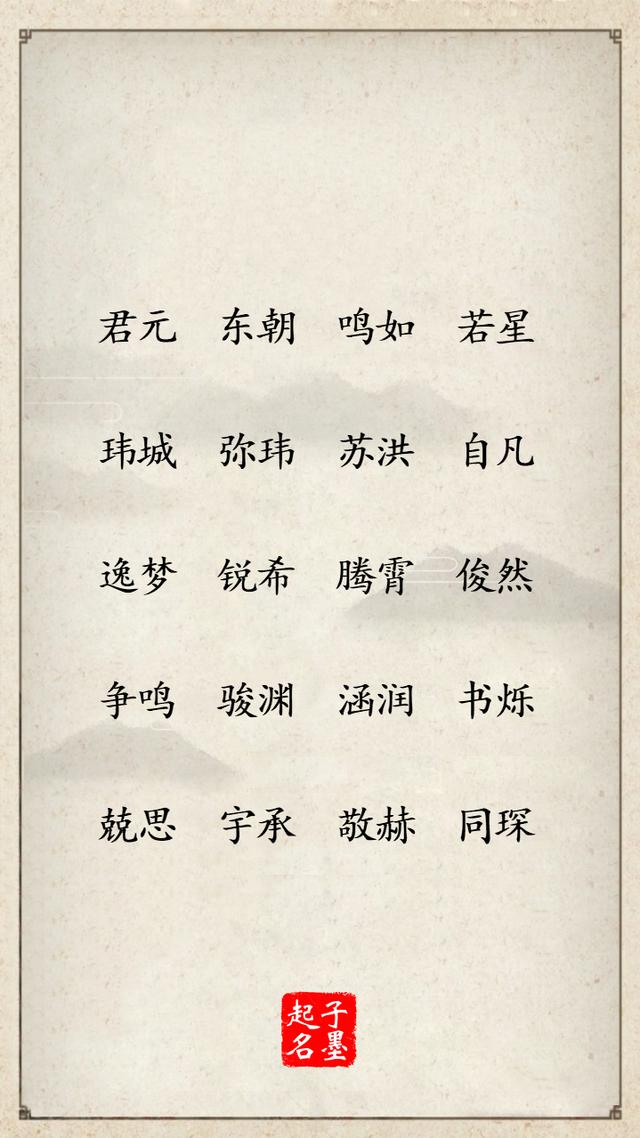 君元 东朝 鸣如 若星
玮城 弥玮 苏洪 自凡
逸梦 锐希 腾霄 俊然
争鸣 骏渊 涵润 书烁
兢思 宇承 敬赫 同琛
子墨
起名